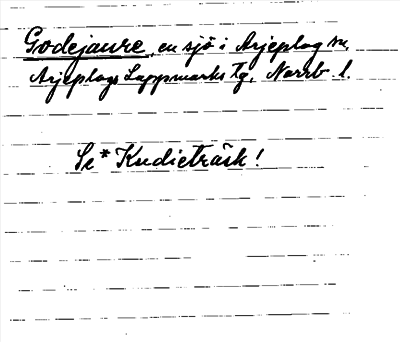 Godejaure, en sjö i Arjeplog sn,
Arjeplogs Lappmarks Tg, Norrb. l.
Se * Kudieträsk!